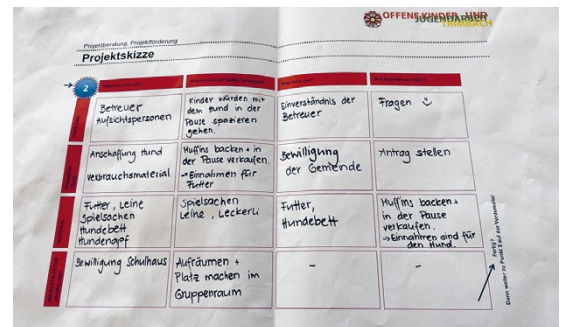 OFFENE KINDER- UND
JUGENDARBEIT
TRIMBACH
Projektberatung, Projektförderung
Projektskizze
2
Betreuer
Aufsichtspersonen
Kinder würden mit
dem Hund in der
Pause spazieren
gehen.
Einverständnis der
Betreuer
Fragen
Anschaffung Hund
Verbrauchsmaterial
Muffins backen + in
der Pause verkaufen.
→ Einnahmen für
Futter
Bewilligung
der Gemeinde
Antrag stellen
Futter, Leine
Spielsachen
Hundebett
Hundenapf
Spielsachen
Leine, Leckerli
Futter,
Hundebett
Muffins backen +
in der Pause
verkaufen.
→ Einnahmen sind für
den Hund.
Bewilligung Schulhaus
Aufräumen +
Platz machen im
Gruppenraum
-
-
Fertig?
Dann weiter zu Punkt 3 auf der Vorderseite!